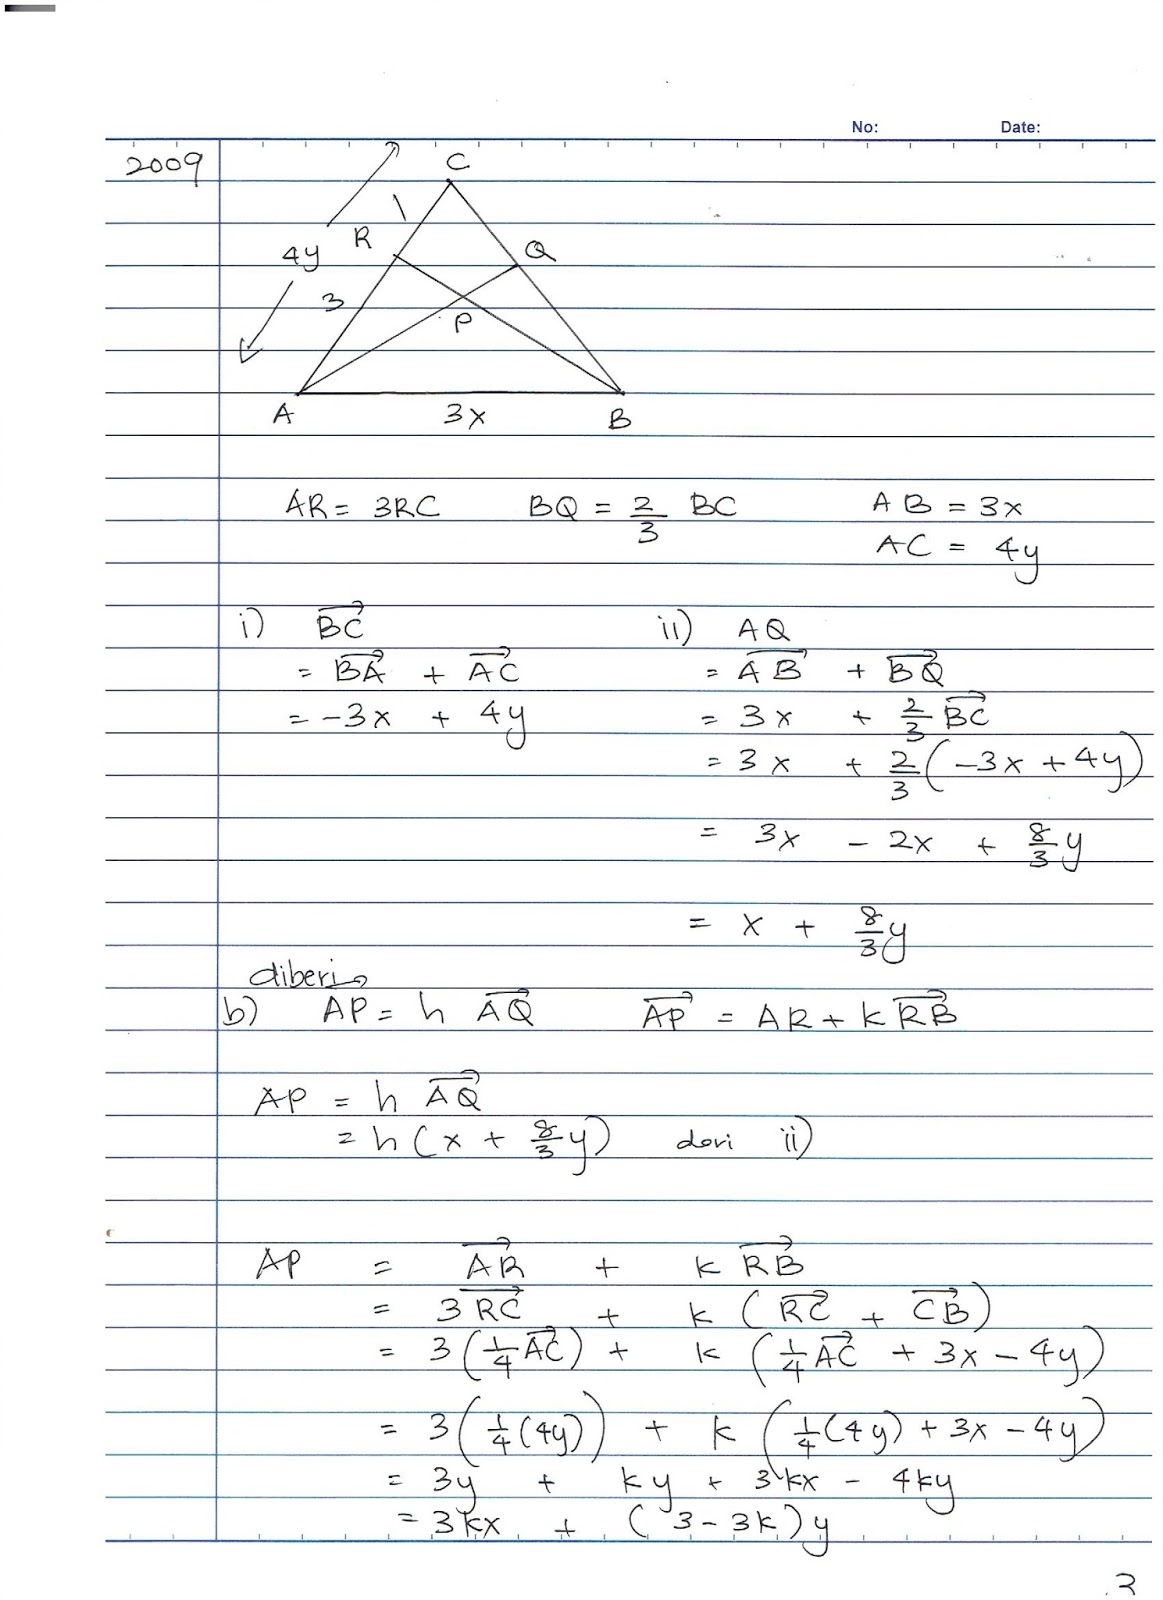 No: Date:
2009
C
1
R
Q
4y
3
P
A 3x B
AR = 3RC BQ = 2/3 BC AB = 3x
AC = 4y
i) BC ii) AQ
= BA + AC = AB + BQ
= -3x + 4y = 3x + 2/3 BC
= 3x + 2/3 (-3x + 4y)
= 3x - 2x + 8/3 y
= x + 8/3 y
diberi
b) AP = h AQ AP = AR + k RB
AP = h AQ
= h (x + 8/3 y) dari ii)
AP = AR + k RB
= 3 RC + k (RC + CB)
= 3 (1/4 AC) + k (1/4 AC + 3x - 4y)
= 3 (1/4 (4y)) + k (1/4 (4y) + 3x - 4y)
= 3y + ky + 3kx - 4ky
= 3kx + (3 - 3k) y
2